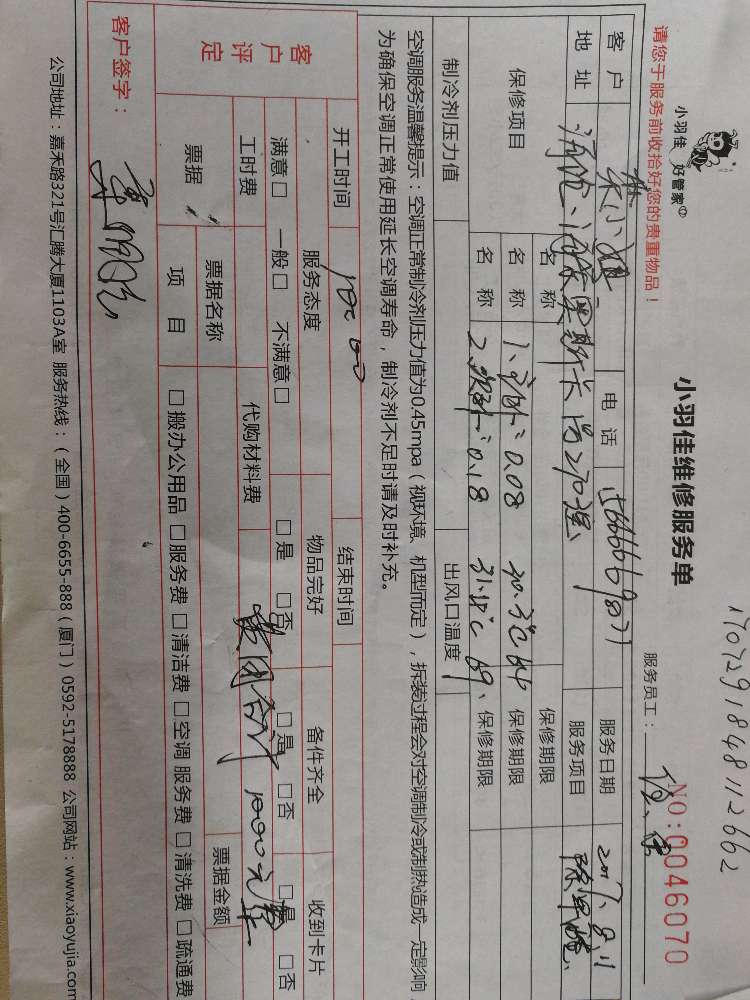 1707291848112662
小羽佳
好管家
小羽佳维修服务单
NO:0046070
请您于服务前收拾好您的贵重物品！
服务员工：
客户 朱小姐 电话 15666669877 服务日期 2017.8.11
地址 服务项目 除甲醛
保修项目 名称 保修期限
名称 1. 0.08 保修期限
名称 2. 0.18 保修期限
制冷剂压力值 出风口温度
空调服务温馨提示：空调正常制冷剂压力值为0.45mpa（视环境、机型而定），拆装过程会对空调制冷或制热造成一定影响
为确保空调正常使用延长空调寿命，制冷剂不足时请及时补充。
开工时间 结束时间
客户评定 服务态度 物品完好 备件齐全 收到卡片
满意□ 一般□ 不满意□ □是 □否 □是 □否 □是 □否
工时费 代购材料费 费用合计 1000元整
票据 票据名称 票据金额
项目 □搬办公用品 □服务费 □清洁费 □空调服务费 □清洗费 □疏通费
客户签字：
公司地址：嘉禾路321号汇腾大厦1103A室 服务热线：（全国）400-6655-888（厦门）0592-5178888 公司网站：www.xiaoyujia.com